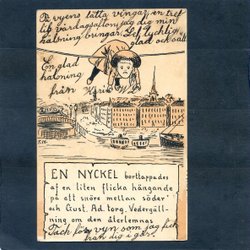 På vyens lätta vingar, en tref-
lig vardagsafton, jag dig min
halsning bringar. Lef lycklig,
glad och säll
En glad
hälsning
från
EN NYCKEL borttappades
af en liten flicka hängande
på ett snöre mellan söder
och Gust. Ad. torg. Vedergäll-
ning om den återlemnas
Tack för vyn som jag fick
från dig i går.